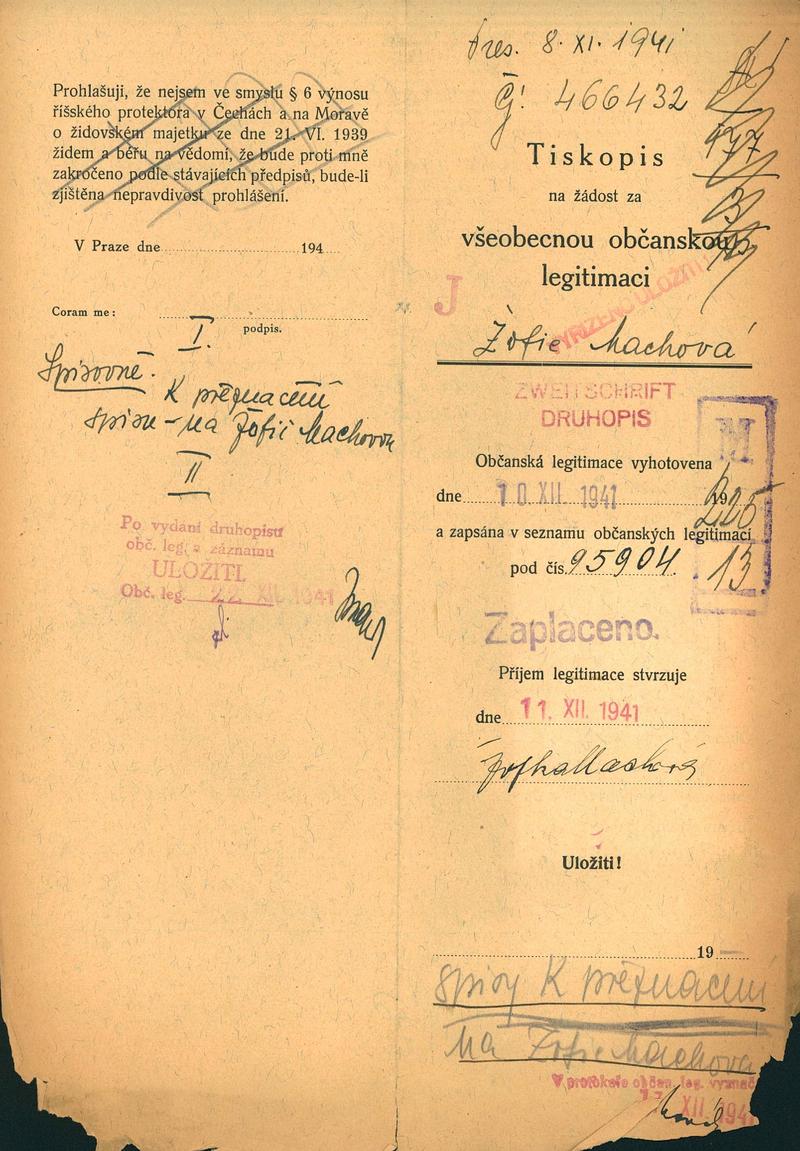 Prohlašuji, že nejsem ve smyslu § 6 výnosu
říšského protektora v Čechách a na Moravě
o židovském majetku ze dne 21. VI. 1939
židem a béřu na vědomí, že bude proti mně
zakročeno podle stávajících předpisů, bude-li
zjištěna nepravdivost prohlášení.
V Praze dne 194
Coram me:
podpis.
I.
Spisovně.
K přeznačení
spisu - na Žofii Machovou
II
Po vydání druhopisu
obč. leg. a záznamu
ULOŽITI.
Obč. leg. 22 XII. 1941
Pres. 8. XI. 1941
Čj. 466432
177
3
13
Tiskopis
na žádost za
všeobecnou občanskou
legitimaci
J
VYŘÍZENO ULOŽITI
Žofie Machová
ZWEITSCHRIFT
DRUHOPIS
M
Občanská legitimace vyhotovena
dne 10 XII. 1941 19
225
a zapsána v seznamu občanských legitimací
pod čís. 95904
13
Zaplaceno.
Příjem legitimace stvrzuje
dne 11. XII. 1941
Žofka Machová
Uložiti!
19
spisy K přeznačení
na Žofie Machová
V protokole občan. leg. vyznač
XII. 1941